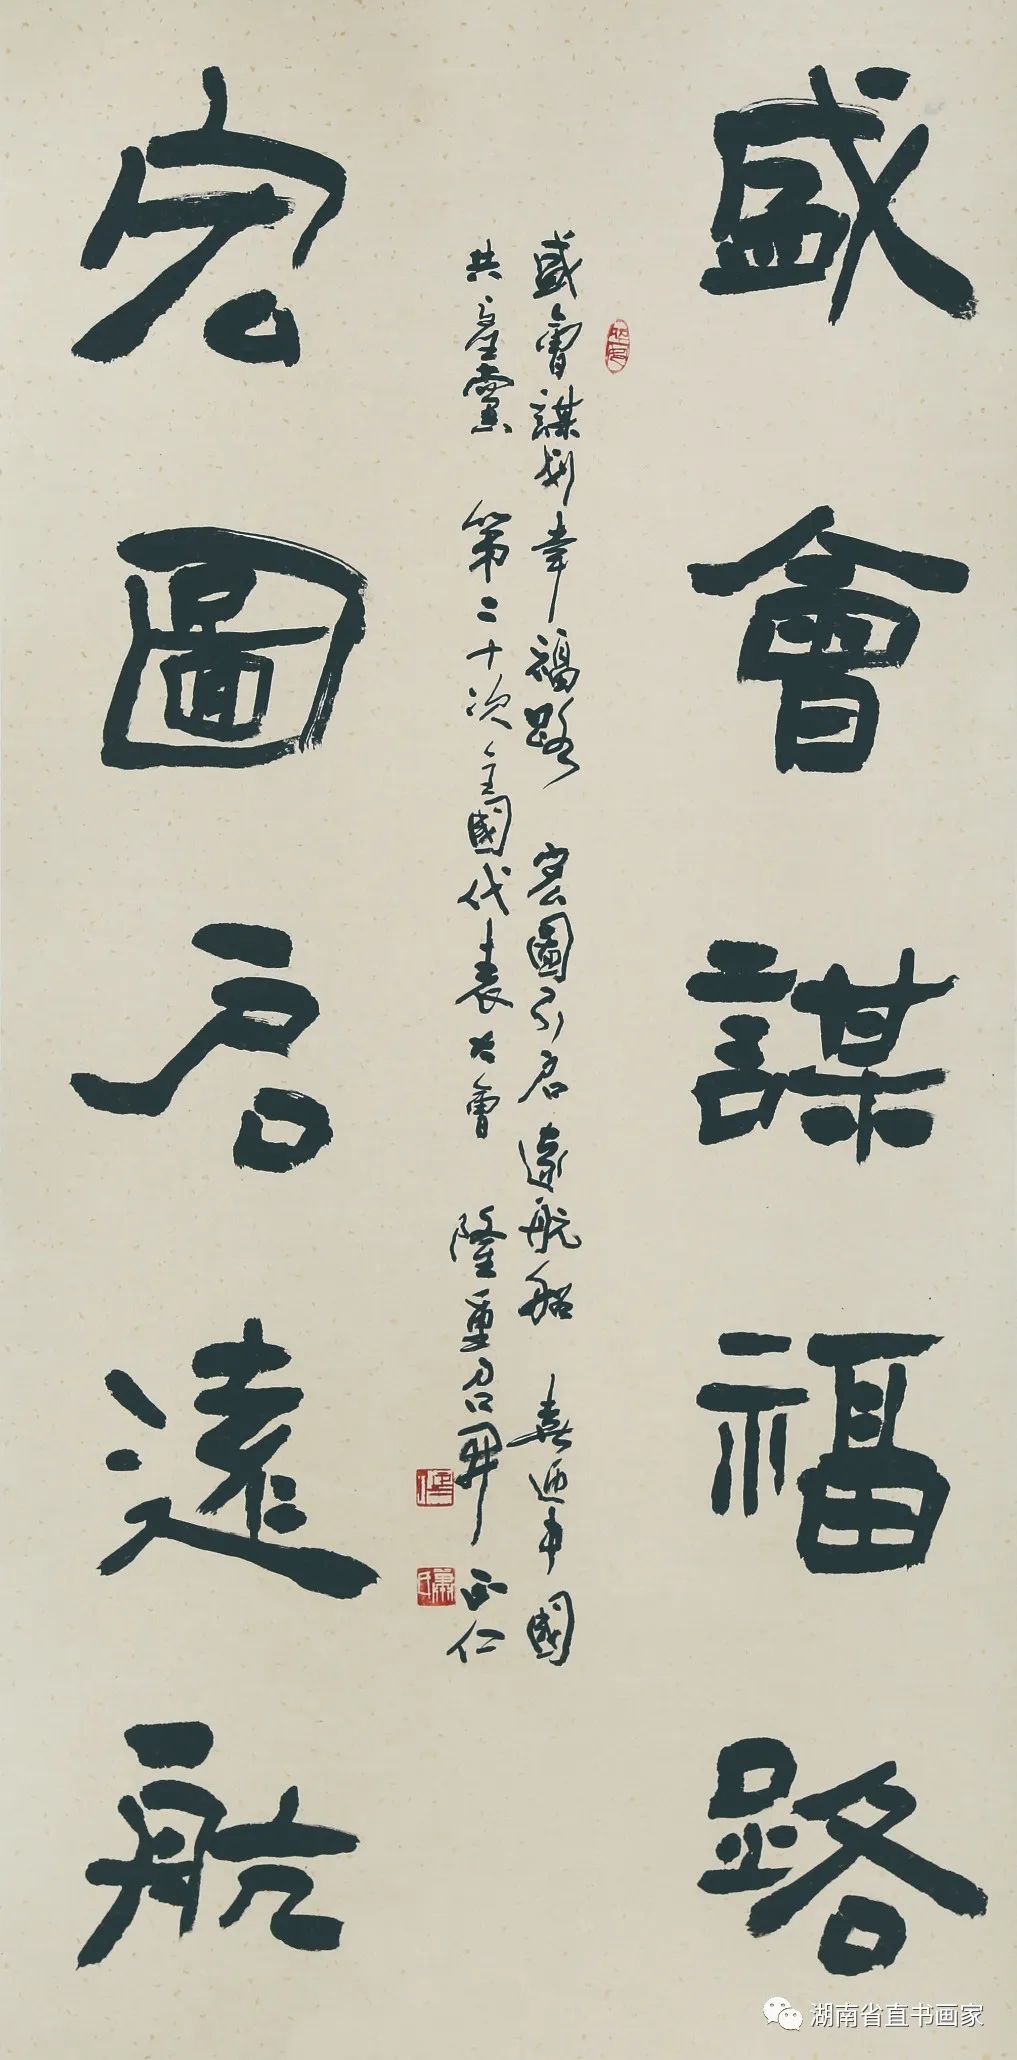 盛會謀福路
宏圖启遠航
盛會謀划幸福路 宏圖引启遠航船 喜迎中國
共產黨 第二十次全國代表大會 隆重召開 正仁
湖南省直书画家